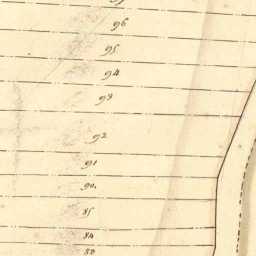 96
95
94
93
92
91
90.
85
84
83